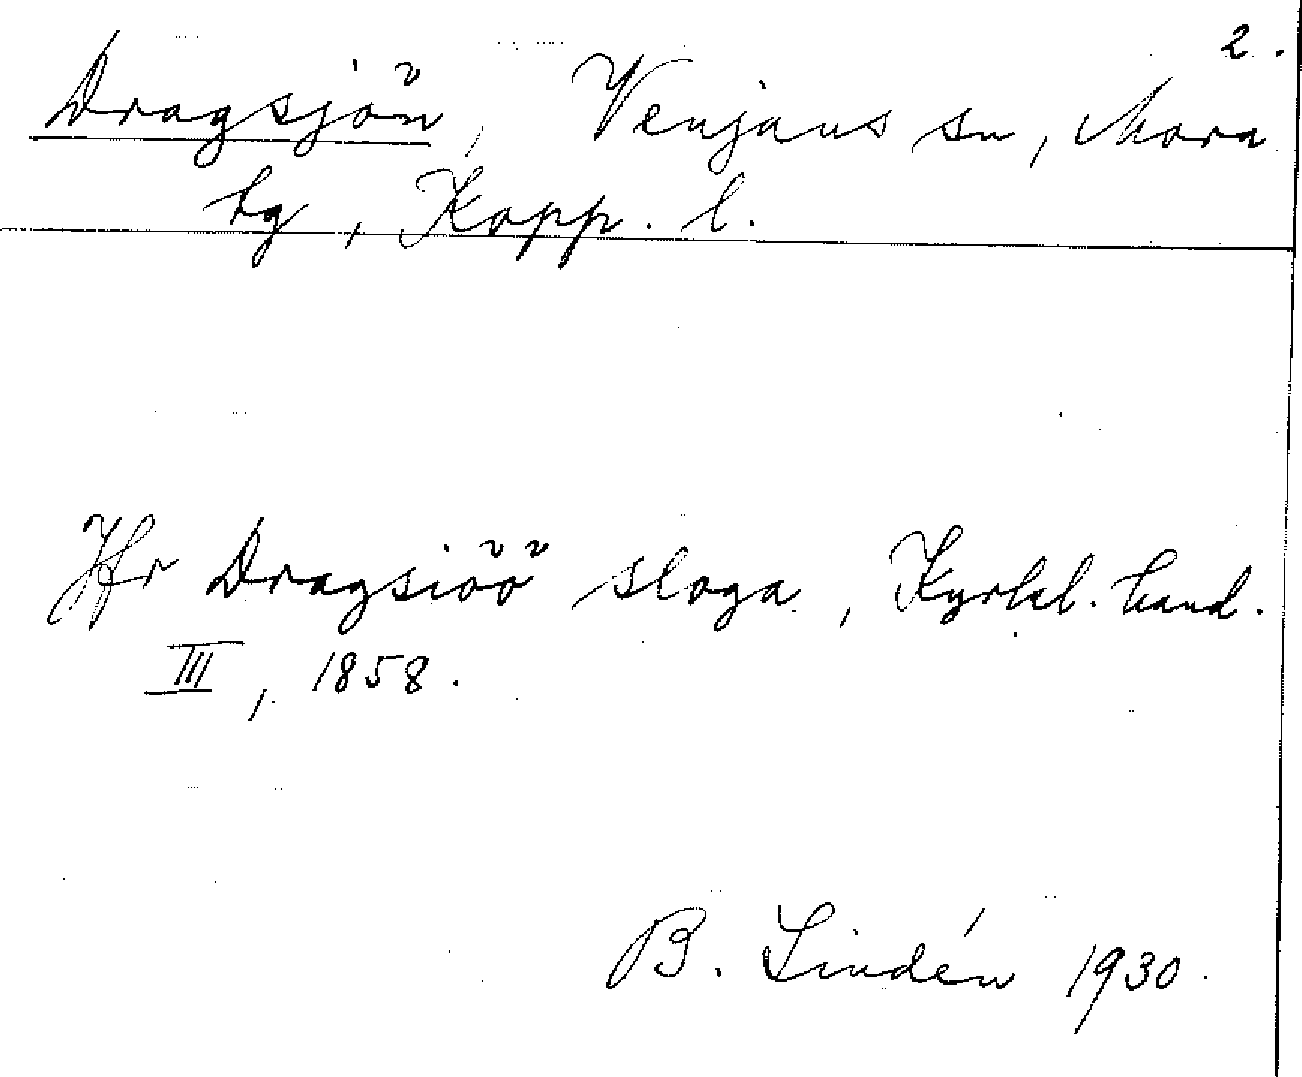 2.
Dragsjön, Venjans sn, Mora
tg, Kopp. l.
Jfr Dragsiöö sloga, Kyrkl. hand.
III, 1858.
B. Lindén 1930.